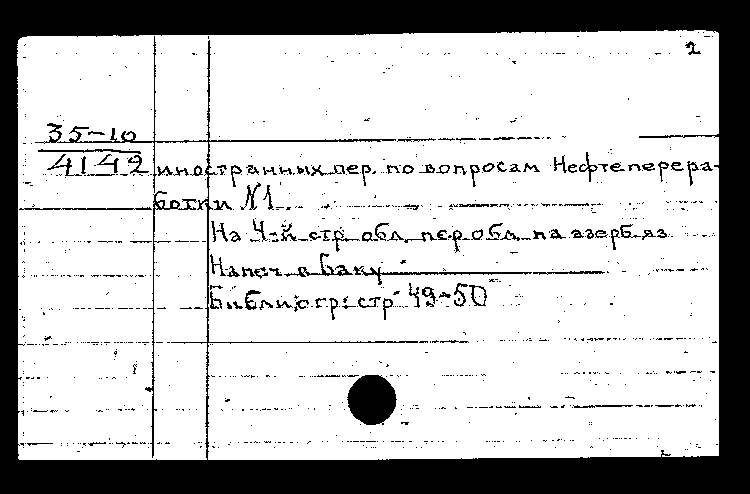 2
35-10
4142 иностранных пер. по вопросам Нефтеперера-
ботки №1.
На 4-й стр обл. пер обл. на азерб. яз
Напеч. в Баку
Библиогр: стр 49-50